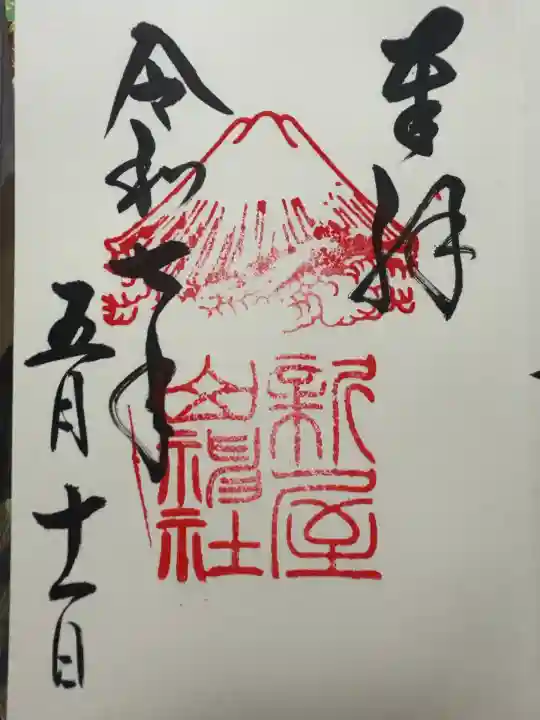 奉拝
新屋
山神社
令和七年
五月十一日